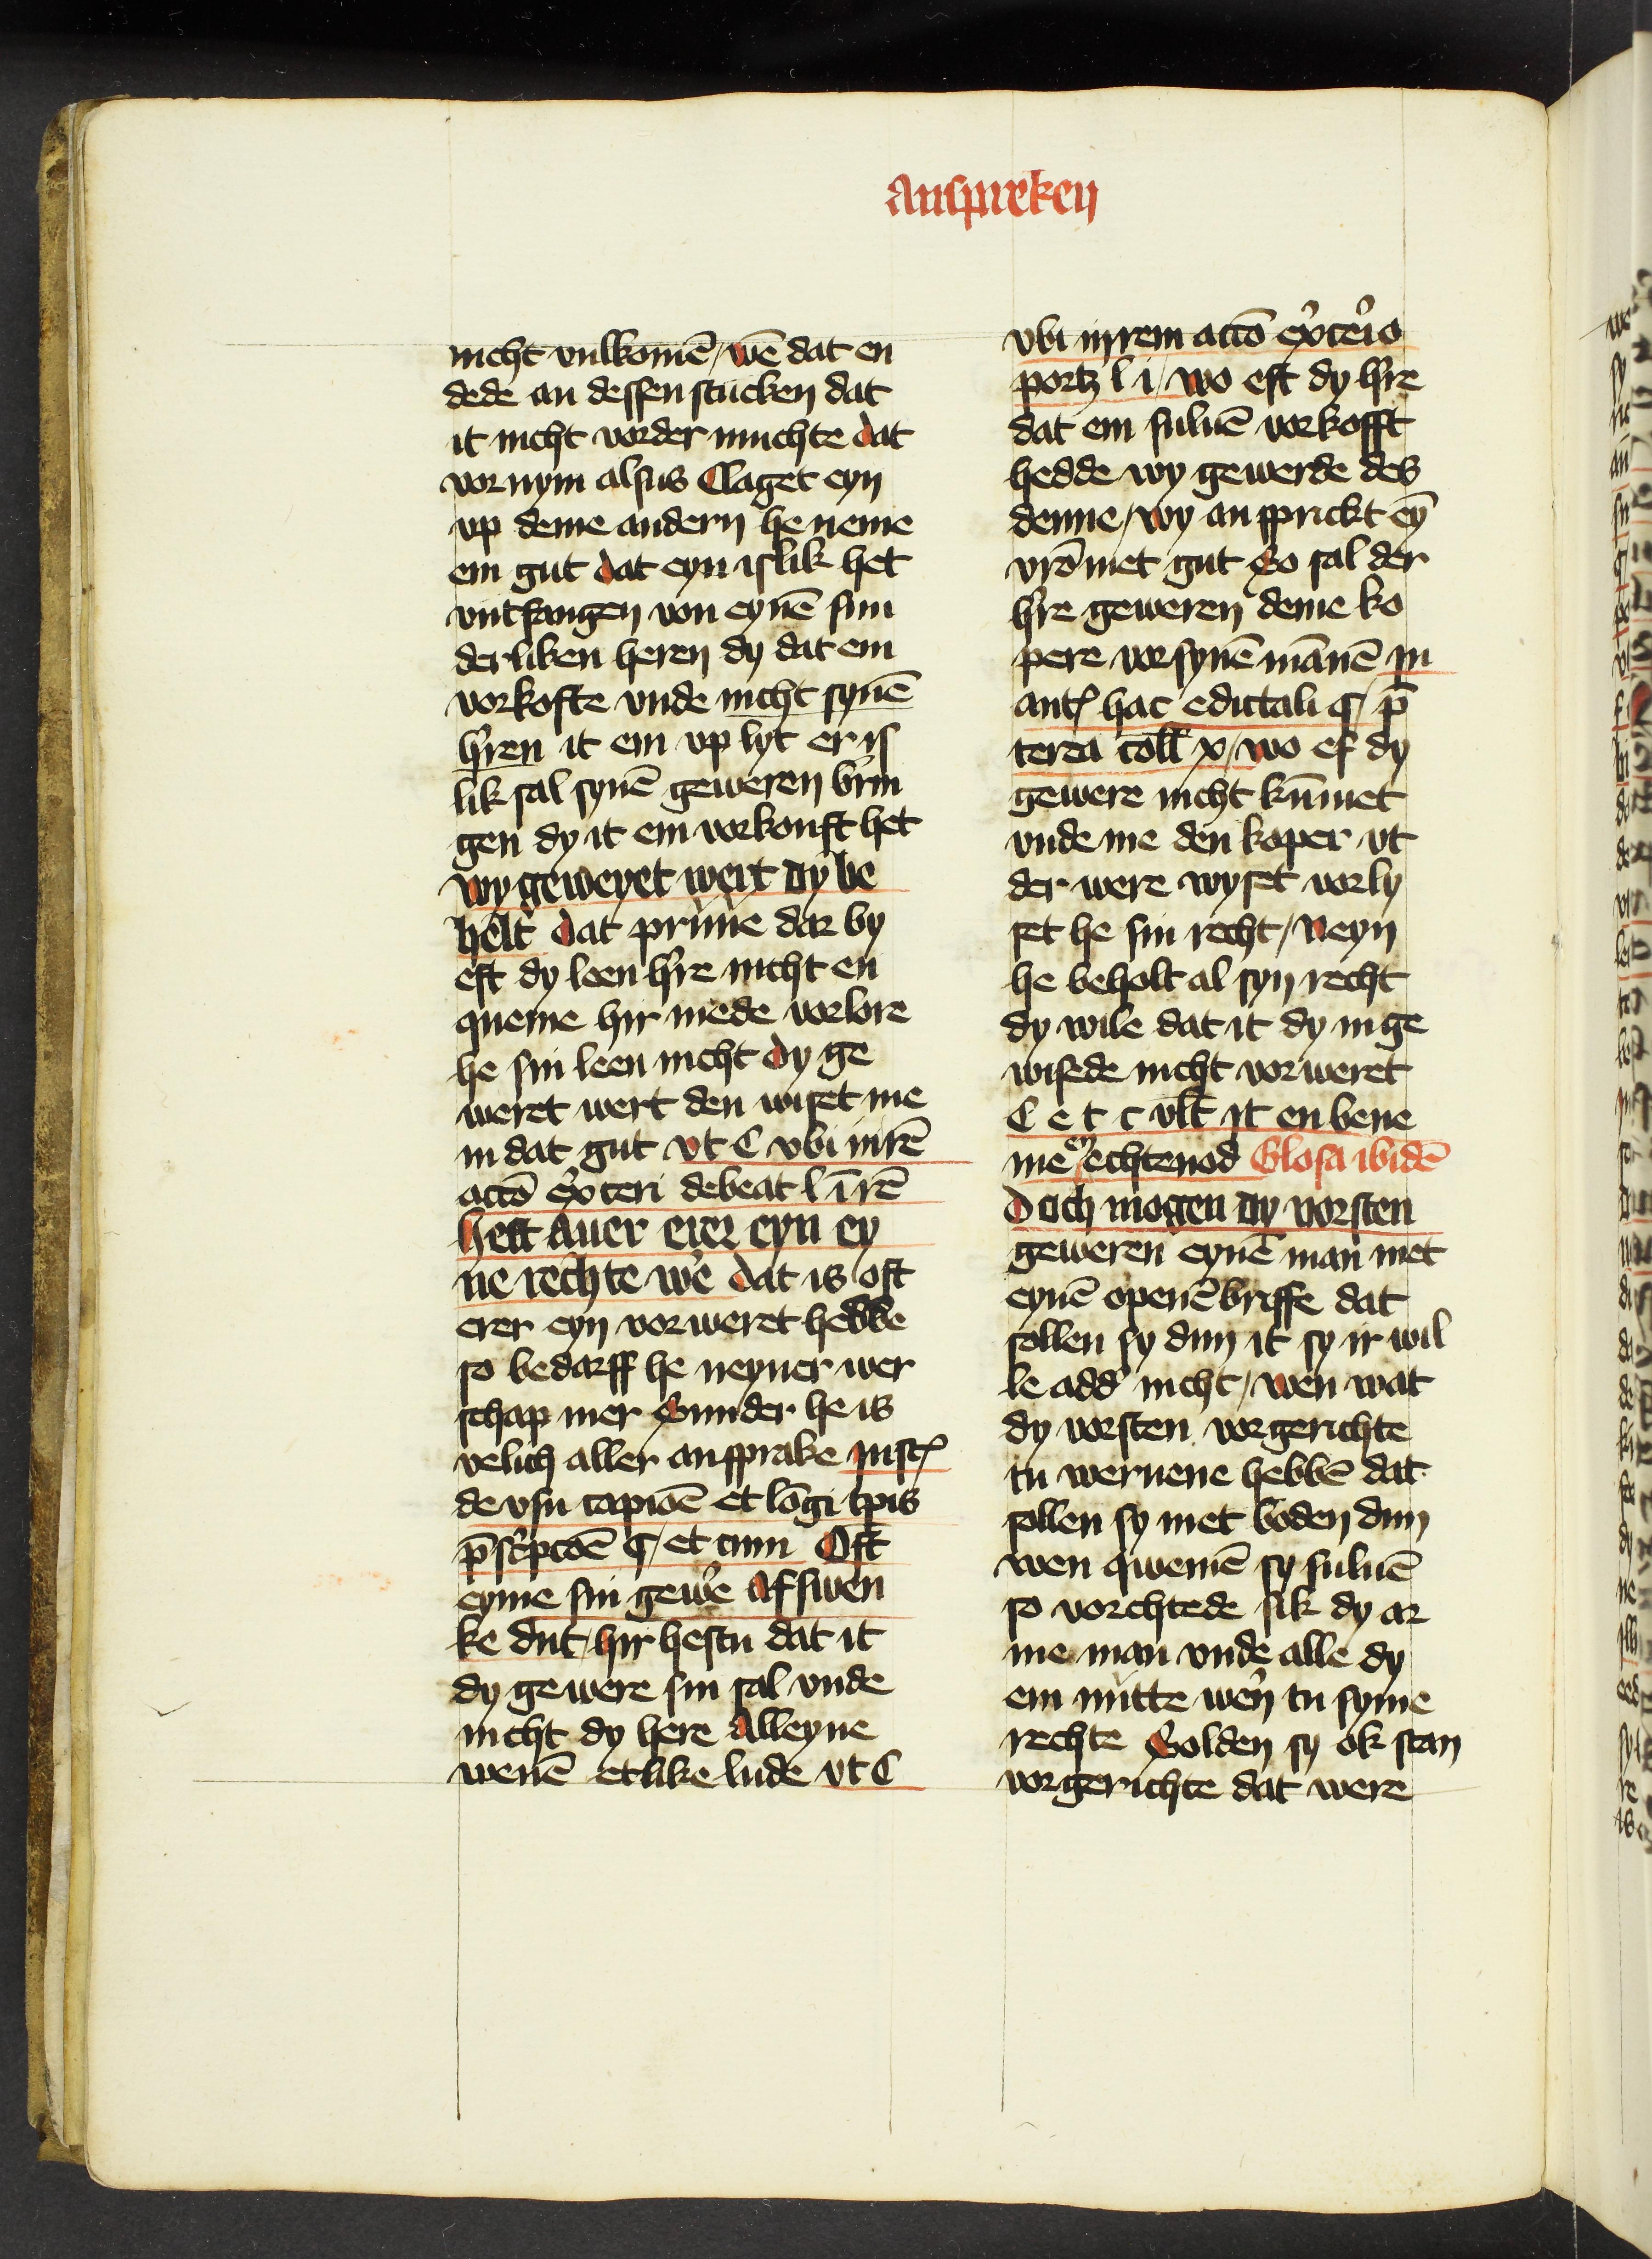 anspreken
nicht vulkomē / wē dat en
dede an dessen stucken dat
it nicht vorder muchte dat
vornym alsus Claget eyn
vp deme andern he neme
em gut dat eyn islik het
vntfangen von eynē sun
derliken heren dy dat em
vorkofte vnde nicht synē
h'ren it em vp lyt er is
lik sal synē geweren brin
gen dy it em vorkouft het
wy geweyet wert dy be
helt dat prime dar by
eft dy leen h're nicht en
queme hir mede vorlore
he sin leen nicht dy ge
weret wert den wiset me
in dat gut vt C vbi in rē
actō ex'ceri debeat l i rē
hett auer erer eyn ey
ne rechte we're dat is oft
erer eyn vorweret hedde
so bedarff he neyner wer
schap mer Sunder he is
velich aller ansprake inst
de vsu capiōē et lōgi tpis
p̄scrptōē § et cum Oft
eyme sin gew'e afswen
ke dut / hir hestu dat it
dy gewere sin sal vnde
nicht dy here Alleyne
wenē etlike lude vt C
vbi in rem actō ex'cerio
portz l i / wo eft dy h're
dat em suluē vorkofft
hedde wy gewerde des
denne / wy ansprickt eȳ
vrōmet gut So sal der
h're geweren deme ko
pere vor synē mānē in
ant hac edictali § p̄
terea coll x / wo ef dy
gewere nicht kūmet
vnde me den koper vt
der were wyset vorly
set he sin recht / Neyn
he beholt al syn recht
dy wile dat it dy in ge
wisede nicht vorweret
C e t c vlt it en bene
me en echtenod Glosa ibidē
Doch mogen dy vorsten
geweren eynē man met
eynē openē briffe dat
sollen sy dun it sy ir wil
le add' nicht / wen wat
dy vorsten vor gerichte
tu weruene hebbē dat
sollen sy met boden dun
wen qwemē sy suluē
so vorchtede sik dy ar
me man vnde alle dy
em nutte wer'n tu syme
rechte Solden sy ok stan
vor gerichte dat were